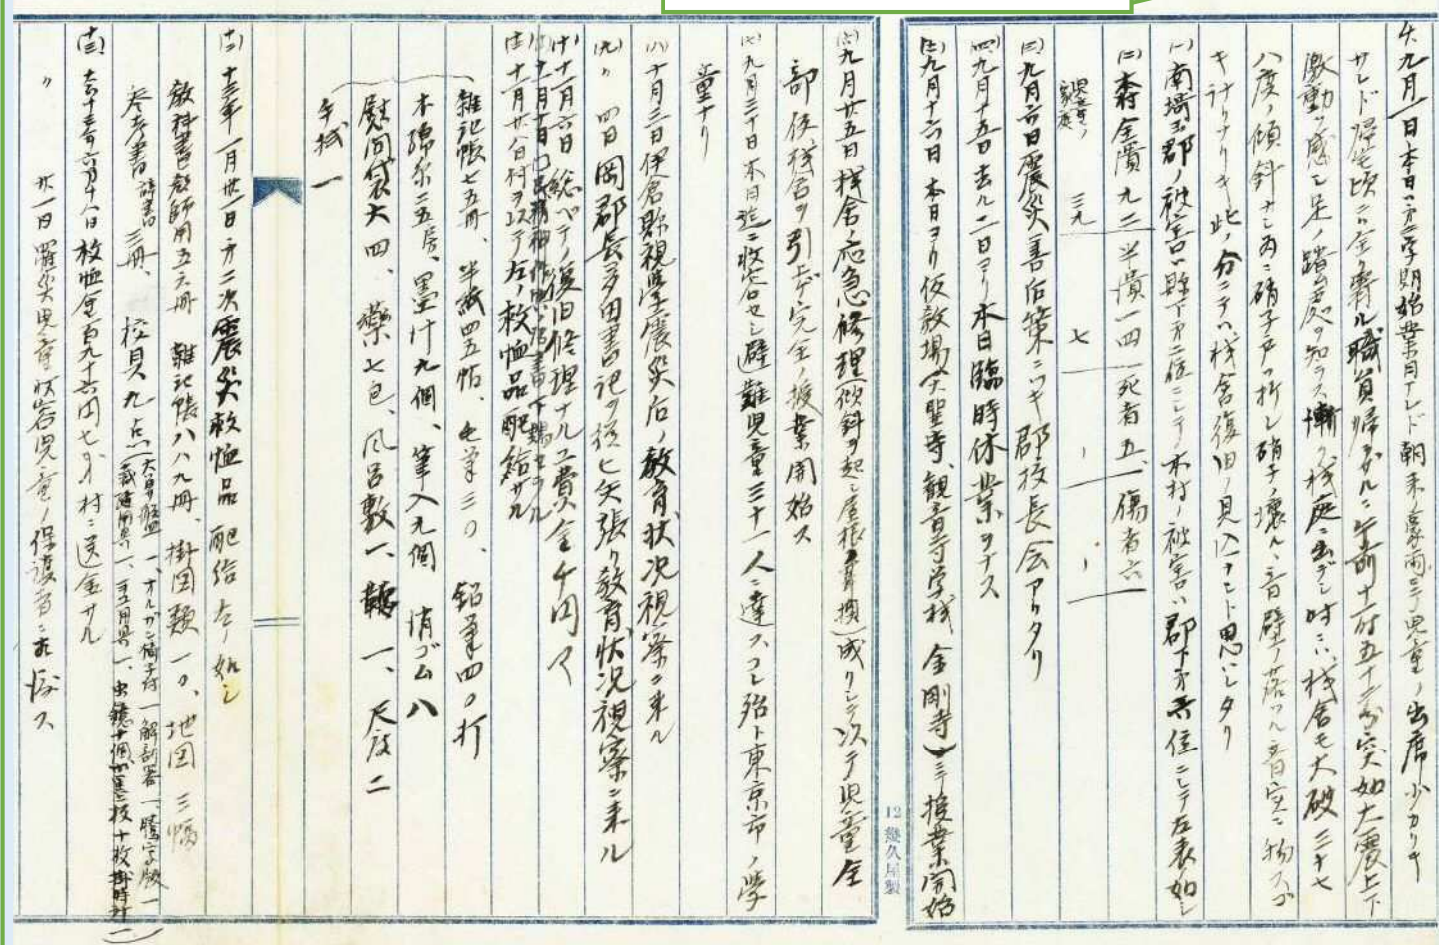 九月一日本日ハ第二学期始業日ナレド朝来ノ豪雨ニテ児童ノ出席少カリキ
サレド帰宅頃ニハ全ク霽ル職員帰ラントスルニ午前十一時五十二分突如大震上下
激動ヲ感シ足ノ踏ム処ヲ知ラス漸ク校庭ニ出デシ時ニハ校舎モ大破三十七
八度ノ傾斜ナシ為ニ硝子戸ノ折レ硝子ノ壊ルヽ音壁ノ落ツル音実ニ物スゴ
キ計リナリキ此ノ分ニテハ校舎復旧ノ見込ナシト思ハシタリ
(一)南埼玉郡ノ被害ハ県下第二位ニシテ本村ノ被害ハ郡下第五位ニシテ左表如シ
(二)本村全潰九二半潰一四一死者五、傷者六
児童ノ家庭 三九 七 、 、
(三)九月六日震災善后策ニツキ郡校長会アリタリ
(四)九月十五日去ル二日ヨリ本日臨時休業ヲナス
(五)九月十六日本日ヨリ仮教場(大聖寺、観音寺学校 金剛寺)ニテ授業開始
12 幾久屋製
(六)九月廿五日校舎ノ応急修理(傾斜ヲ起シ屋根ノ修損)成リシニ次テ児童全
部仮校舎ヲ引上ゲ完全ノ授業開始ス
(七)九月三十日本日迄ニ収容セシ避難児童三十一人ニ達ス コレ殆ト東京市ノ学
童ナリ
(八)十月三日伊倉県視学震災后ノ教育状况視察ニ来ル
(九)〃 四日岡郡長多田書記ヲ従ヒ矢張リ教育状况視察ニ来ル
(十)十一月六日総ベテノ復旧修理ナル工費金千円
(十一)十一月十日国民精神作興ノ詔書下賜セラル
(十二)十一月廿八日村ヲ以テ左ノ救恤品配給サル
雑記帳七五冊、半紙四五帖、毛筆三〇、鉛筆四〇打
木綿糸二五房、墨汁九個、筆入九個 消ゴム八
慰問袋大四、薬七包、風呂敷一、鞄一、尺度二
手拭一
(十二)十三年一月廿一日第二次震災救恤品配給左ノ如シ
教科書教師用五六冊 雑記帳八八九冊、掛図類一〇、地図 三幅
参考書 辞書 三冊、校具九点(大算盤一、オルガン椅子付一 解剖器一、謄写版一
裁縫用具一、手工用具一、虫鏡十個、黒板十枚 掛時計一)
(十三)大正十三年六月十八日救恤金百九十六円七〇村ニ送金サル
〃 廿一日罹災児童収容児童ノ保護者ニ